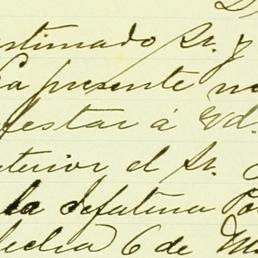 estimado Sr. y
La presente no
festar á Vd.
terior el Sr.
la Jefatura Po
fecha 6 de Ma